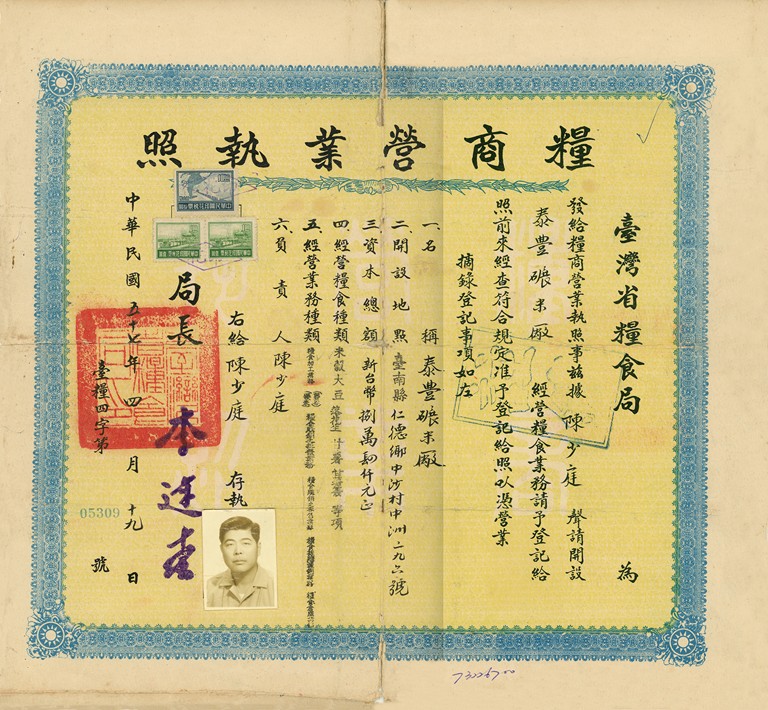 糧商營業執照
臺灣省糧食局 為
發給糧商營業執照事茲據 陳少庭 聲請開設
泰豐碾米廠 經營糧食業務請予登記給
照前來經查符合規定准予登記給照以憑營業
摘錄登記事項如左
一、名稱 泰豐碾米廠
二、開設地點 臺南縣仁德鄉中沙村中洲一九六號
三、資本總額 新台幣捌萬肆仟元正
四、經營糧食種類 米穀大豆
五、經營業務種類
六、負責人 陳少庭
右給 陳少庭 存執
局長 李連春
中華民國五十七年四月十九日
臺糧四字第 05309 號